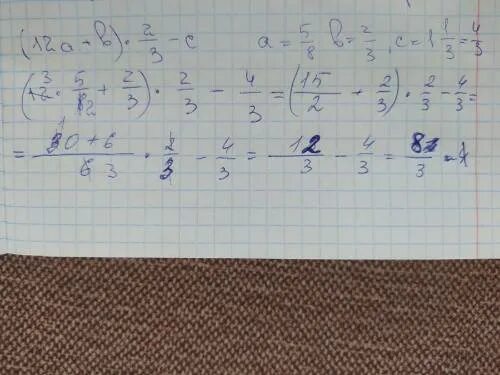 (12a+b)·2/3-c a=5/8 b=2/3, c=1 1/3=4/3
(12·5/8+2/3)·2/3-4/3=(15/2+2/3)·2/3-4/3=
=30+6/6 3·2/3-4/3=12/3-4/3=8/3